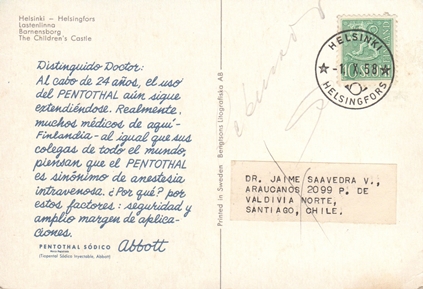 Helsinki – Helsingfors
Lastenlinna
Barnensborg
The Children's Castle
Distinguido Doctor:
Al cabo de 24 años, el uso
del PENTOTHAL aún sigue
extendiéndose. Realmente,
muchos médicos de aquí-
Finlandia-al igual que sus
colegas de todo el mundo,
piensan que el PENTOTHAL
es sinónimo de anestesia
intravenosa. ¿Por qué? por
estos factores: seguridad y
amplio margen de aplica-
ciones.
PENTOTHAL SÓDICO
Abbott
(Tiopental Sódico Inyectable, Abbott)
Printed in Sweden Bengtsons Litografiska AB
HELSINKI
-1.X.58
HELSINGFORS
DR. JAIME SAAVEDRA V.,
ARAUCANOS 2099 P. DE
VALDIVIA NORTE,
SANTIAGO, CHILE.